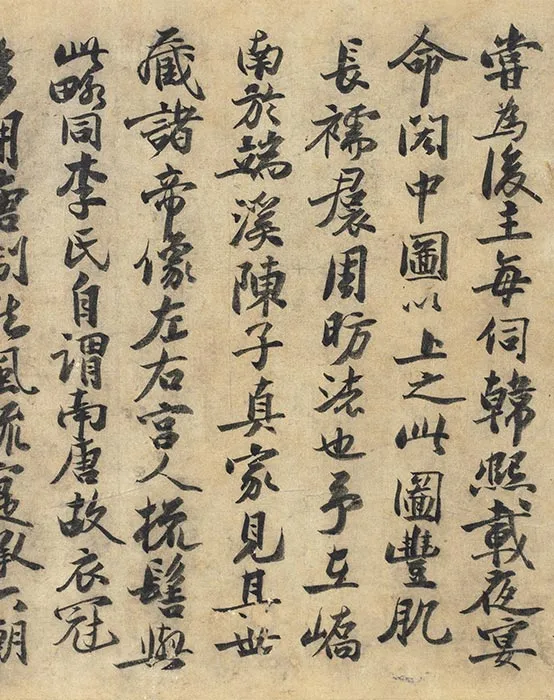 嘗為後主每伺韓熙載夜宴
命閎中圖以上之此圖豐肌
長襦裠周昉法也予在嶠
南於端溪陳子真家見其世
藏諸帝像左右宮人梳髻與
此略同李氏自謂南唐故衣冠
用唐制風流寔承六朝